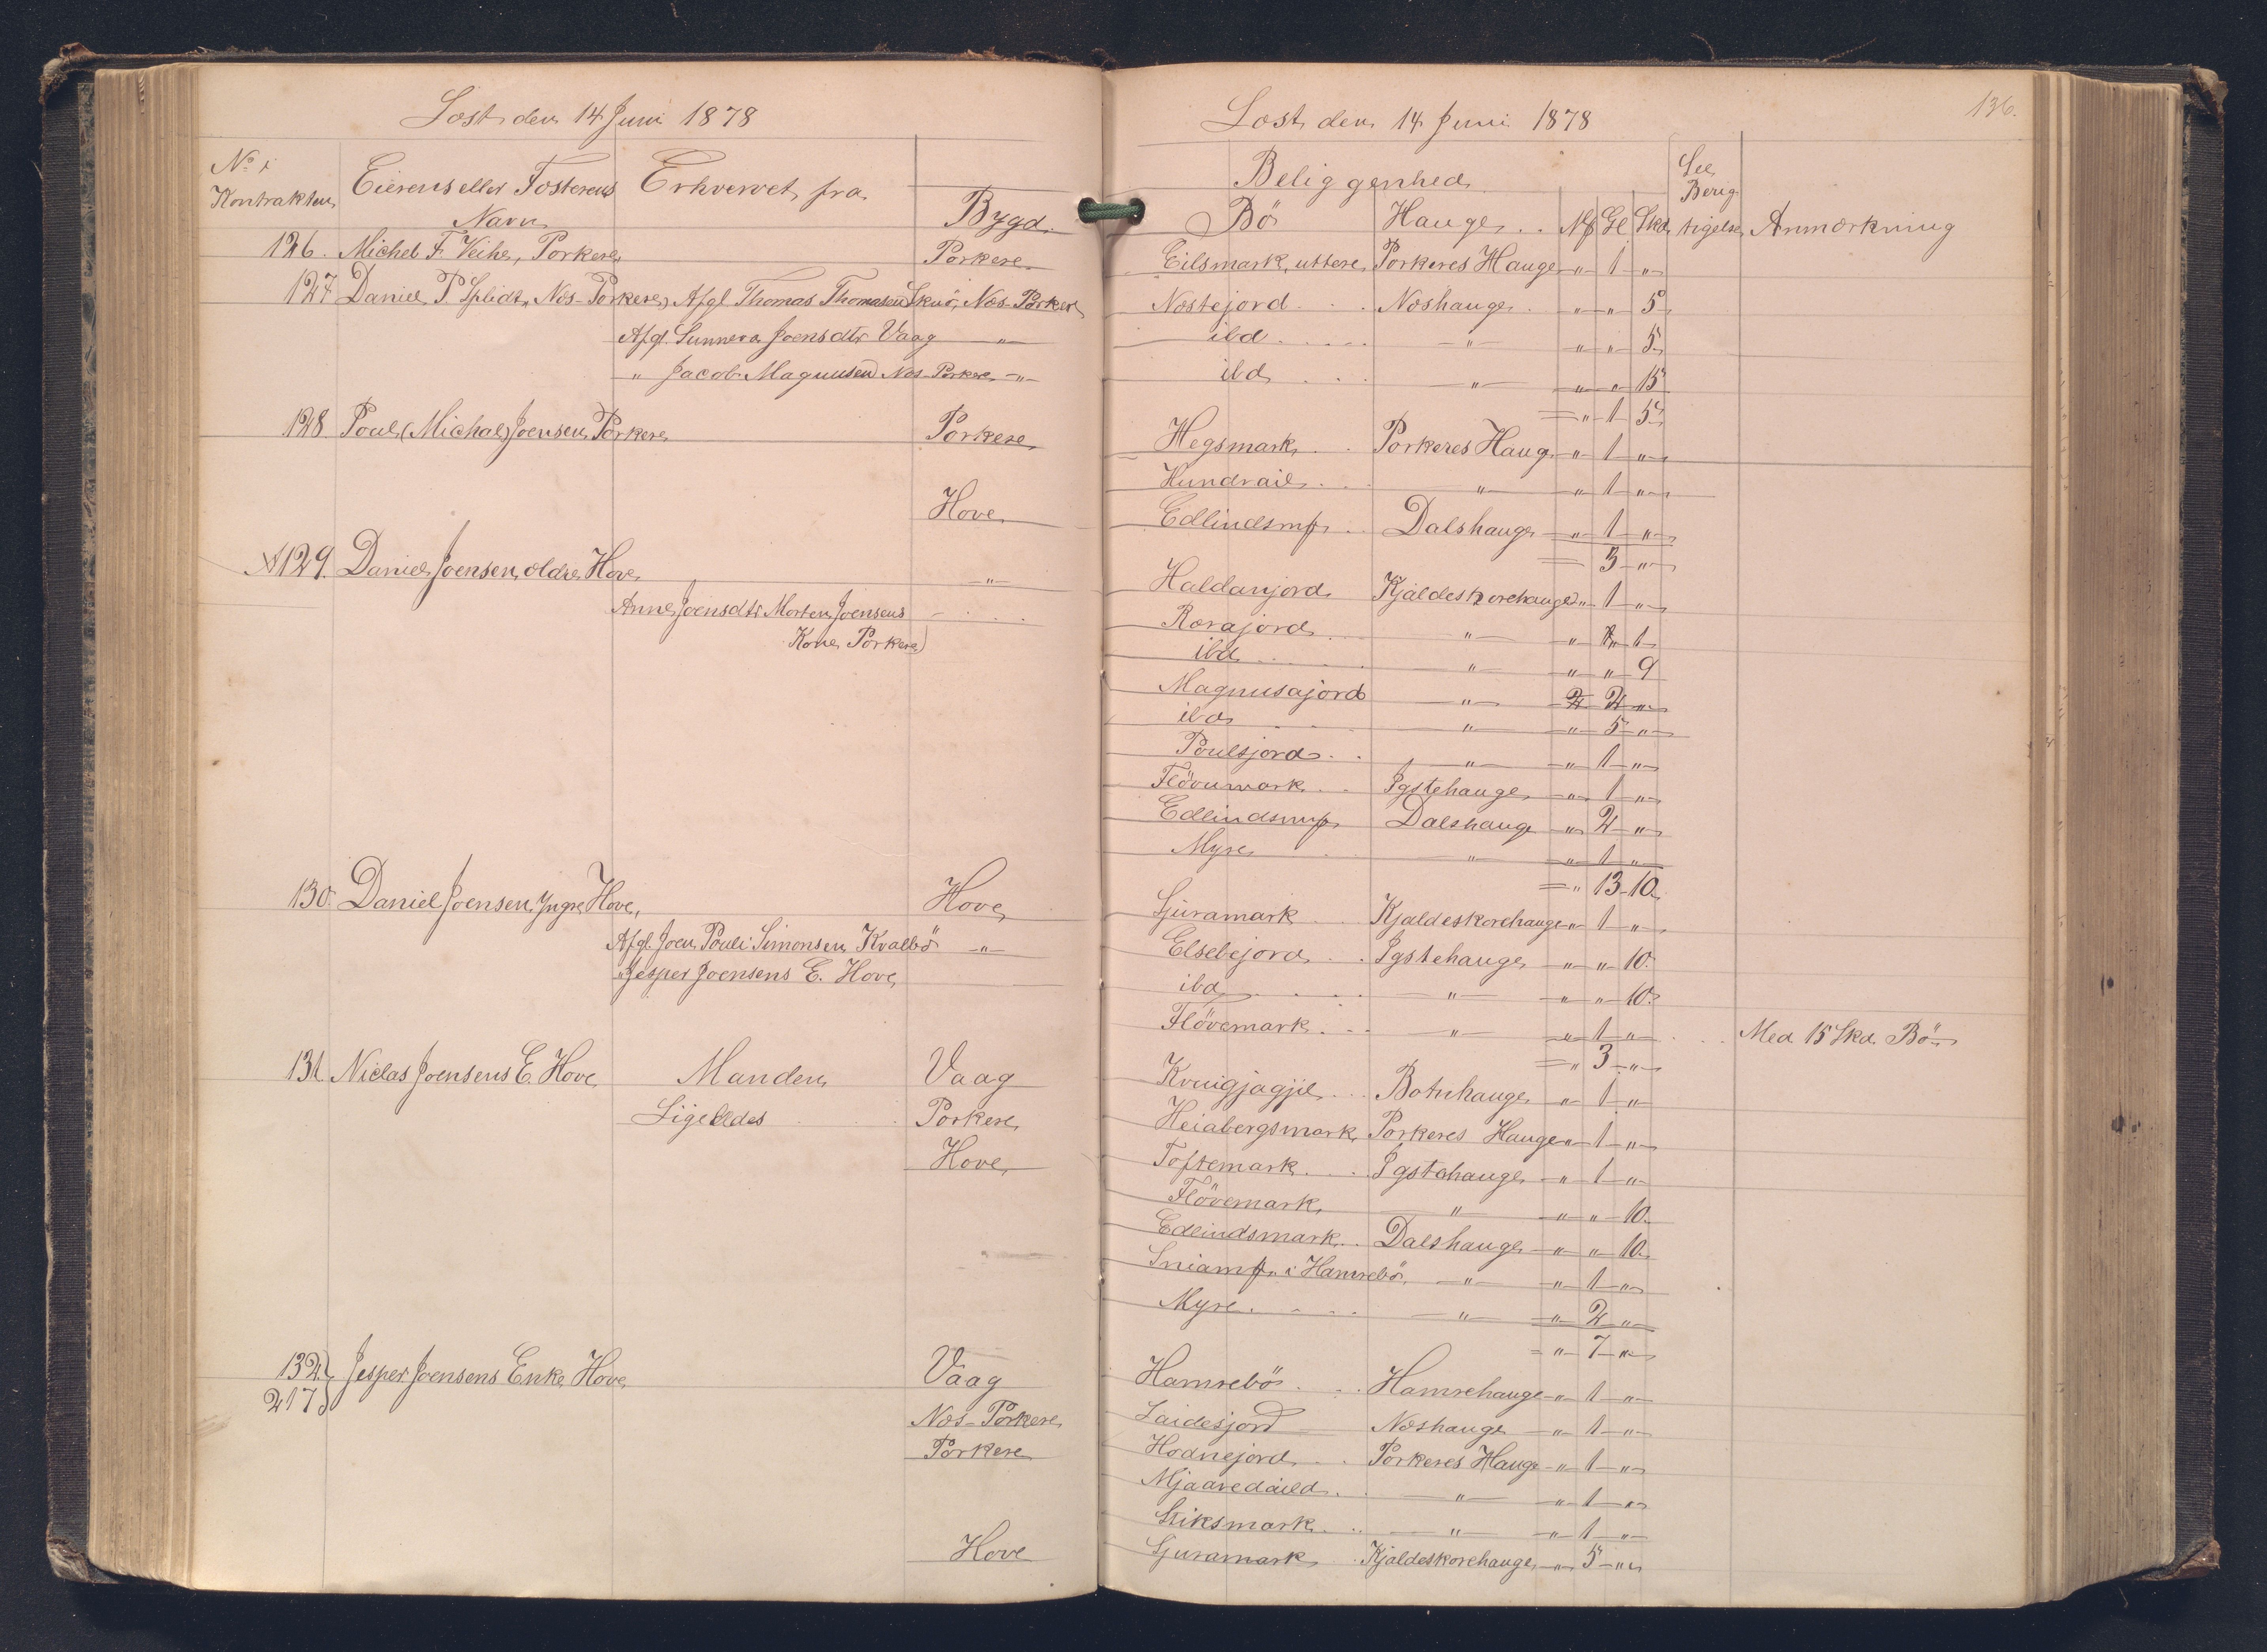 Læst den 14 Juni 1878
No i Kontrakten
Eierens eller Fæsterens Navn
Erhvervet fra
Bygd
126. Michel F. Veihe, Porkere Porkere
127 Daniel P. Splidt, Næs-Porkere, Afgl Thomas Thomasen Skuö, Næs-Porkere
Afgl. Sunneva Joensdtr Vaag — " —
" Jacob Magnusen Næs-Porkere — " —
128. Poul (Michal) Joensen Porkere Porkere
Hove
129. Daniel Joensen, ældre Hove — " —
Anne Joensdtr Morten Joensens
Kone Porkere)
130. Daniel Joensen, Yngre Hove, Hove
Afgl. Joen Pouli Simonsen Kvalbö — " —
Jesper Joensens E. Hove
131. Niclas Joensens E. Hove Manden Vaag
Ligeledes Porkere
Hove
132 } Jesper Joensens Enke Hove Vaag
217 }
Næs-Porkere
Porkere
Hove
136.
Læst den 14 Juni 1878
Beliggenhed
See Berigtigelse
Bö Hauge Mk Gl Skd Anmærkning
Eilsmark, uttere Porkeres Hauge " 1 "
Nostejord Næshauge " " 5
ibd " " " 5
ibd " " " 15
= " 1 5
Hegsmark Porkeres Haug " 1 "
Hundrail " " 1 "
Edlindsmk Dalshauge " 1 "
= 3 "
Haldanjord Kjaldeskorehauge " 1 "
Rorajord " " " 1
ibd " " " 9
Magnusajord " 2 2 "
ibd " " 5 "
Poulsjord " " 1 "
Flövumark Igstehauge " 1 "
Edlindsmk Dalshauge " 2 "
Myre " " 1 "
= " 13 10
Ljuramark Kjaldeskorehauge " 1 "
Elsebejord Igstehauge " " 10.
ibd " " " 10.
Flövemark " " 1 " Med 15 Skd. Bö
= " 3 "
Kvuigjagjil Botnhauge " 1 "
Heiabergsmark Porkeres Hauge " 1 "
Toftemark Igstehauge " 1 "
Flövemark " " " 10.
Edlindsmark Dalshauge " " 10.
Sniamk i Hamrebö " " 1 "
Myre " " 2 "
= " 7 "
Hamrebö Hamrehauge " 1 "
Laidesjord Næshauge " 1 "
Hodnejord Porkeres Hauge " 1 "
Mjaavedaild " " 1 "
Stiksmark " " 1 "
Ljuramark Kjaldeskorehauge " 5 "